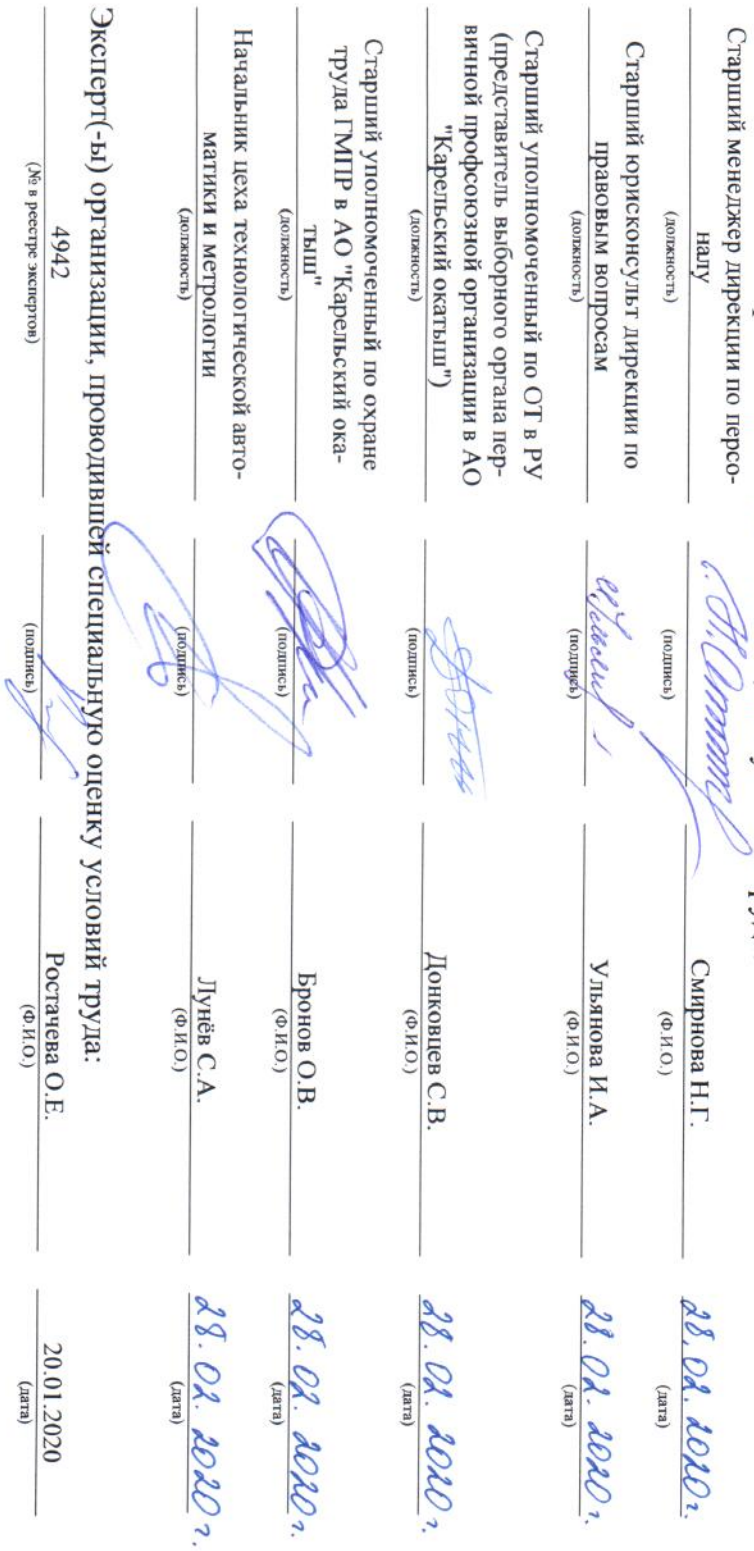 Старший менеджер дирекции по персо-
налу Смирнова Н.Г. 28.02.2020г.
(должность) (подпись) (Ф.И.О.) (дата)
Старший юрисконсульт дирекции по
правовым вопросам Ульянова И.А. 28.02.2020г.
(должность) (подпись) (Ф.И.О.) (дата)
Старший уполномоченный по ОТ в РУ
(представитель выборного органа пер-
вичной профсоюзной организации в АО
"Карельский окатыш") Донковцев С.В. 28.02.2020г.
(должность) (подпись) (Ф.И.О.) (дата)
Старший уполномоченный по охране
труда ГМПР в АО "Карельский ока-
тыш" Бронов О.В. 28.02.2020г.
(должность) (подпись) (Ф.И.О.) (дата)
Начальник цеха технологической авто-
матики и метрологии Лунёв С.А. 28.02.2020г.
(должность) (подпись) (Ф.И.О.) (дата)
Эксперт(-ы) организации, проводившей специальную оценку условий труда:
4942 Ростачева О.Е. 20.01.2020
(№ в реестре экспертов) (подпись) (Ф.И.О.) (дата)